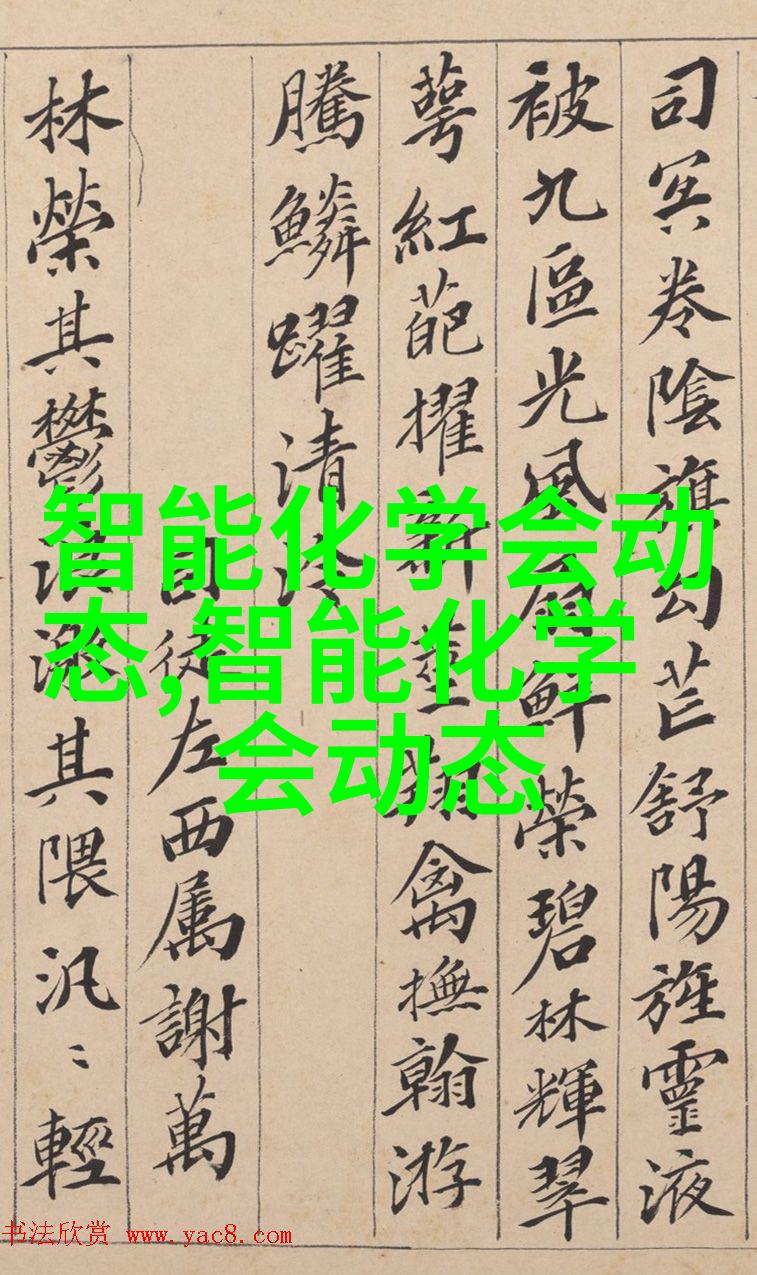 司冥卷陰旗勾芒舒陽旌靈液
被九區光風扇鮮榮碧林輝翠
萼紅葩擢新莖翔禽撫翰游
騰鱗躍清泠
司徒左西属謝萬
林榮其鬱浪激其隈汎〻輕
智能化学会动
态,智能化学
会动态
书法欣赏 www.yac8.com